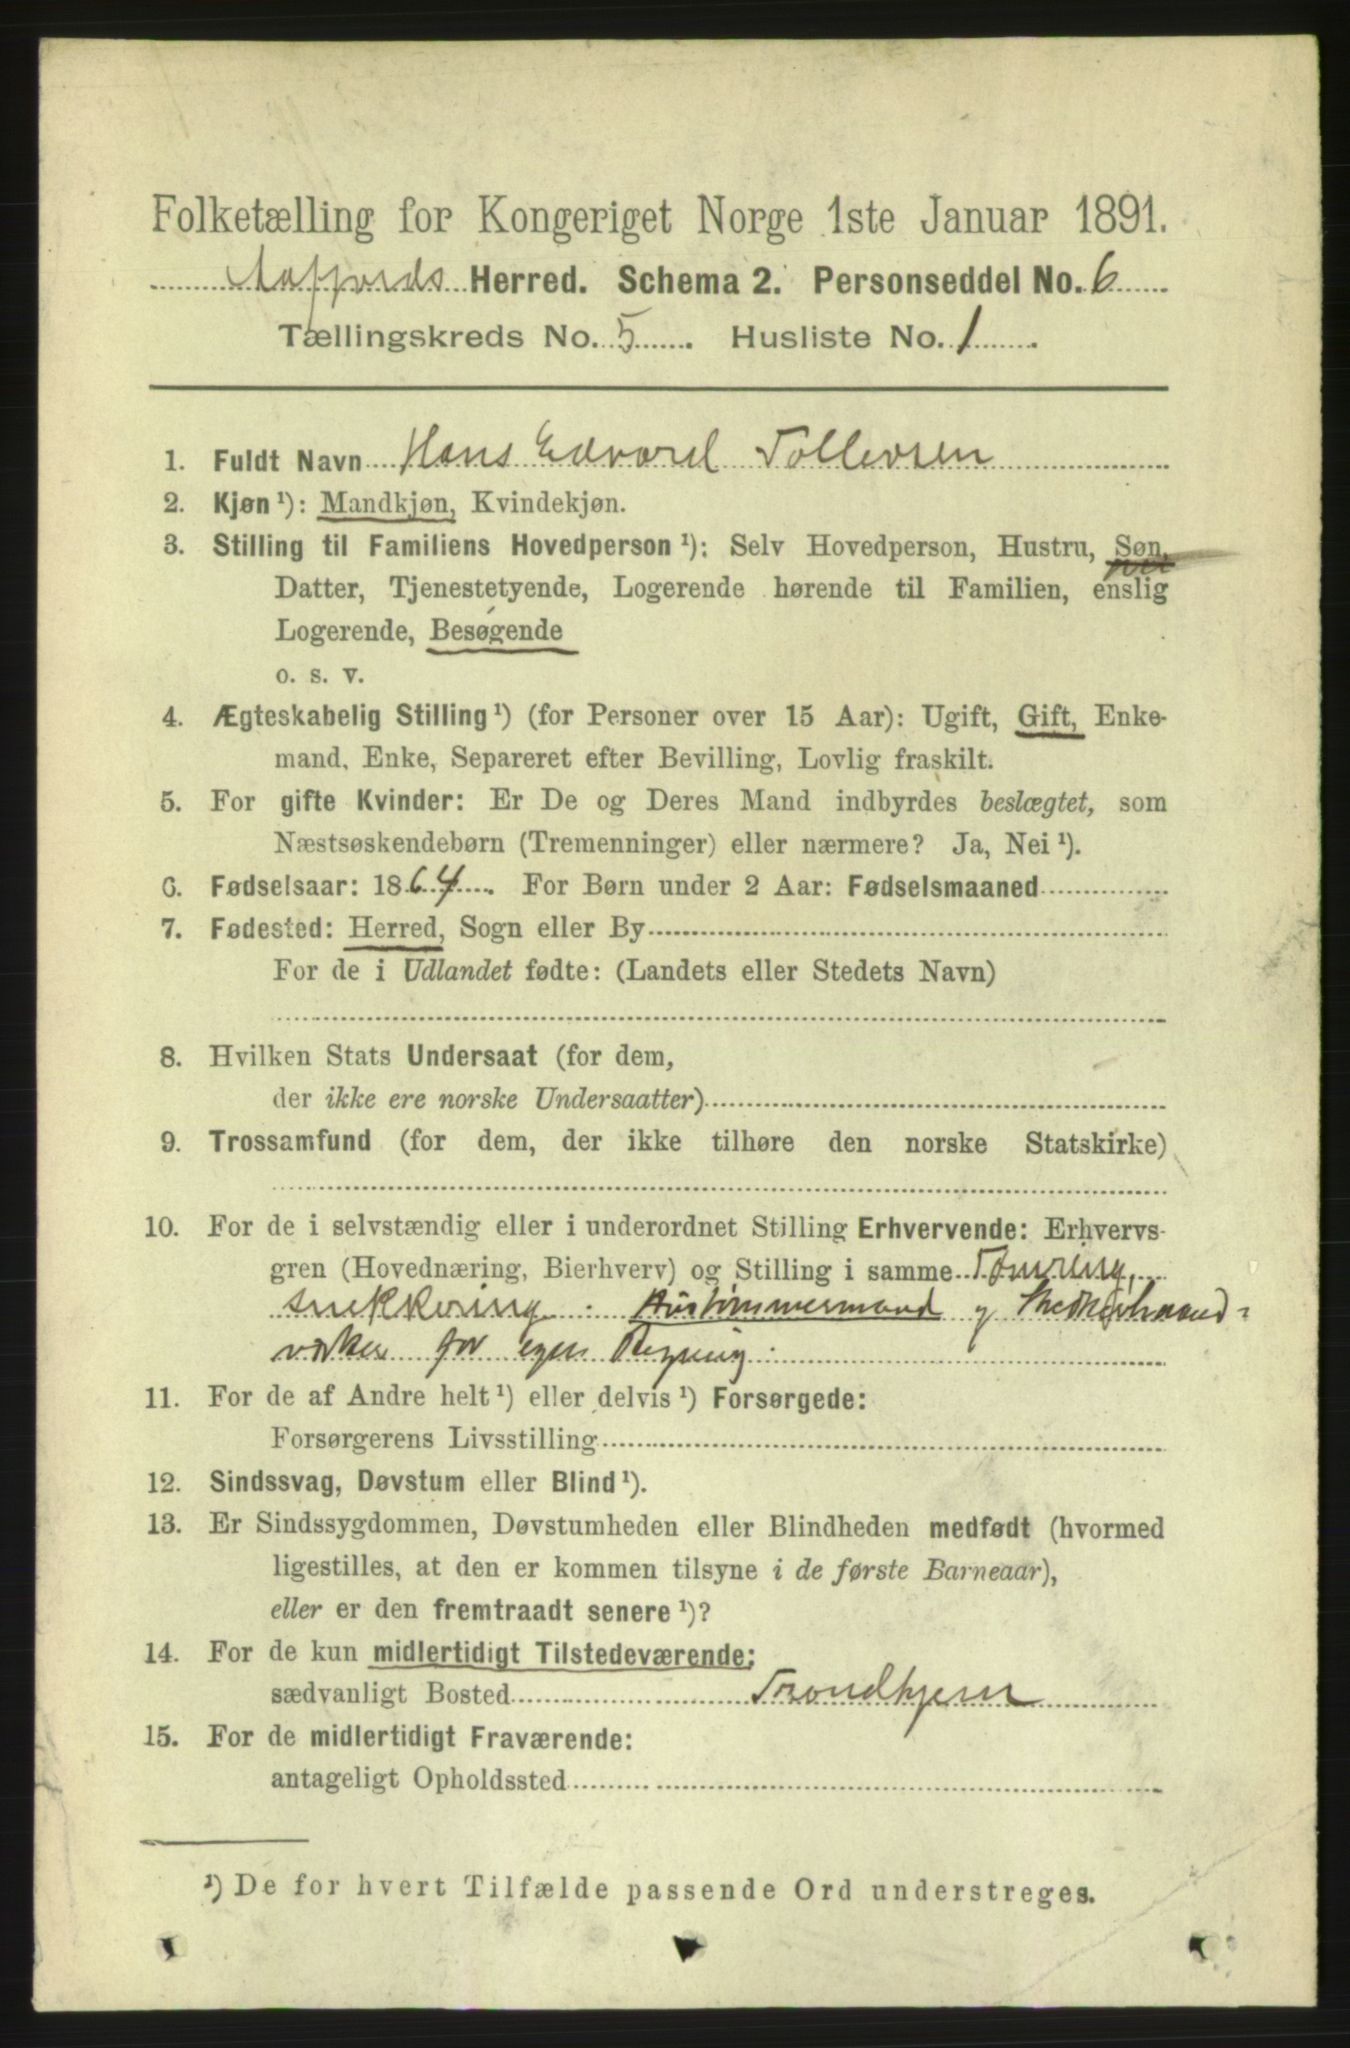 Folketælling for Kongeriget Norge 1ste Januar 1891.
Aafjords Herred. Schema 2. Personseddel No. 6
Tællingskreds No. 5. Husliste No. 1.
1. Fuldt Navn Hans Edvard Tollevsen
2. Kjøn ¹): Mandkjøn, Kvindekjøn.
3. Stilling til Familiens Hovedperson ¹): Selv Hovedperson, Hustru, Søn,
Datter, Tjenestetyende, Logerende hørende til Familien, enslig
Logerende, Besøgende
o. s. v.
4. Ægteskabelig Stilling ¹) (for Personer over 15 Aar): Ugift, Gift, Enke-
mand, Enke, Separeret efter Bevilling, Lovlig fraskilt.
5. For gifte Kvinder: Er De og Deres Mand indbyrdes beslægtet, som
Næstsøskendebørn (Tremenninger) eller nærmere? Ja, Nei ¹).
6. Fødselsaar: 1864. For Børn under 2 Aar: Fødselsmaaned
7. Fødested: Herred, Sogn eller By
For de i Udlandet fødte: (Landets eller Stedets Navn)
8. Hvilken Stats Undersaat (for dem,
der ikke ere norske Undersaatter)
9. Trossamfund (for dem, der ikke tilhøre den norske Statskirke)
10. For de i selvstændig eller i underordnet Stilling Erhvervende: Erhvervs-
gren (Hovednæring, Bierhverv) og Stilling i samme Tømring,
snekkering. Hustømmermand
for egen Regning.
11. For de af Andre helt ¹) eller delvis ¹) Forsørgede:
Forsørgerens Livsstilling
12. Sindssvag, Døvstum eller Blind ¹).
13. Er Sindssygdommen, Døvstumheden eller Blindheden medfødt (hvormed
ligestilles, at den er kommen tilsyne i de første Barneaar),
eller er den fremtraadt senere ¹)?
14. For de kun midlertidigt Tilstedeværende:
sædvanligt Bosted Trondhjem
15. For de midlertidigt Fraværende:
antageligt Opholdssted
¹) De for hvert Tilfælde passende Ord understreges.